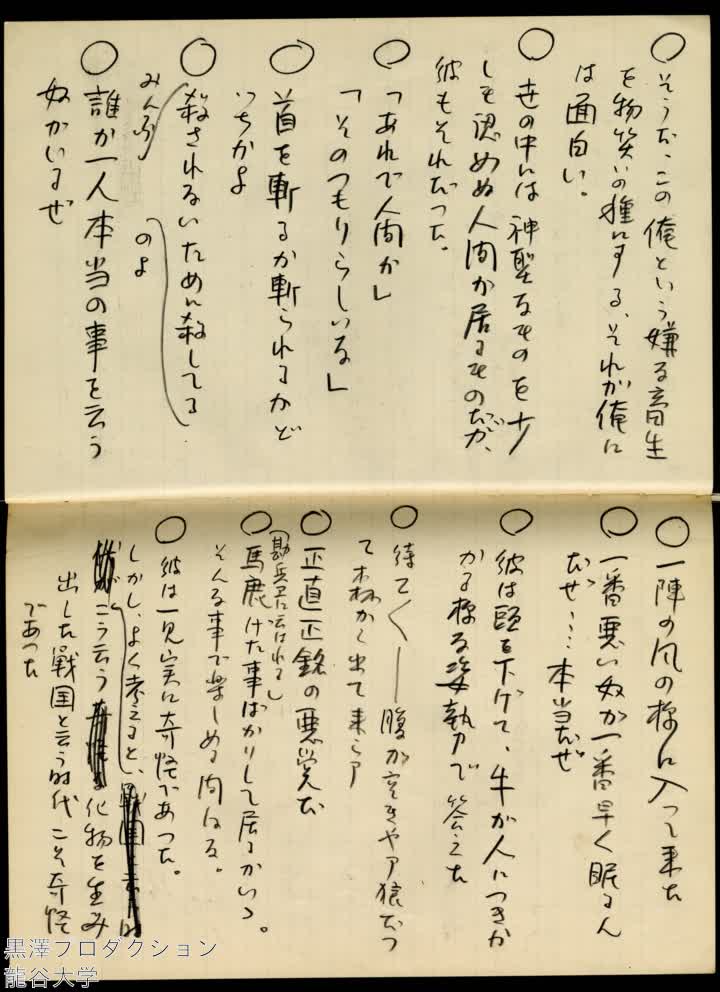 ○そうだ、この俺という嫌な畜生
を物笑いの種にする、それが俺に
は面白い。
○世の中には神聖なものを少
しも認めぬ人間が居るものだが、
彼もそれだった。
○「あれで人間か」
「そのつもりらしいな」
○首を斬るか斬られるかど
っちかよ
○殺されないために殺してる
のよ
みんな
○誰か一人本当の事を云う
奴がいるぜ
○一陣の風の様に入って来た
○一番悪い奴が一番早く眠るん
だぜ……本当だぜ
○彼は頭を下げて、牛が人につきか
かる様な姿勢で答えた
○待て〱――腹が空きやア狼だっ
て森から出て来らア
○正直正銘の悪党だ
(勘兵衛に云はれる)
○馬鹿げた事ばかりして居るかい〻。
そんな事で楽しめる間はな。
○彼は一見実に奇怪であった。
しかし、よく考えると、
こう云う化物を生み
出した戦国と云う時代こそ奇怪
であった
黒澤プロダクション
龍谷大学